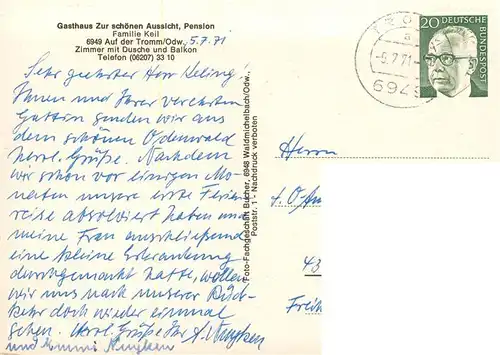 Gasthaus Zur schönen Aussicht, Pension
Familie Keil
6949 Auf der Tromm/Odw. 5.7.71
Zimmer mit Dusche und Balkon
Telefon (06207) 33 10
Sehr geehrter Herr
Ihnen und Ihrer verehrten
Gattin senden wir aus
dem schönen Odenwald
herzl. Grüße. Nachdem
wir schon vor einigen Mo-
naten unsere erste Ferien
reise absolviert haben und
meine Frau anschließend
eine kleine Erkrankung
durchgemacht hatte, wollen
wir uns nach unserer Rück-
kehr doch wieder einmal
sehen. Herzl. Grüße Ihr A.
und
Foto-Fachgeschäft Bucher, 6948 Waldmichelbach/Odw.,
Poststr. 1 - Nachdruck verboten
20 DEUTSCHE
BUNDESPOST
-5.7.71
6949
Herrn
43